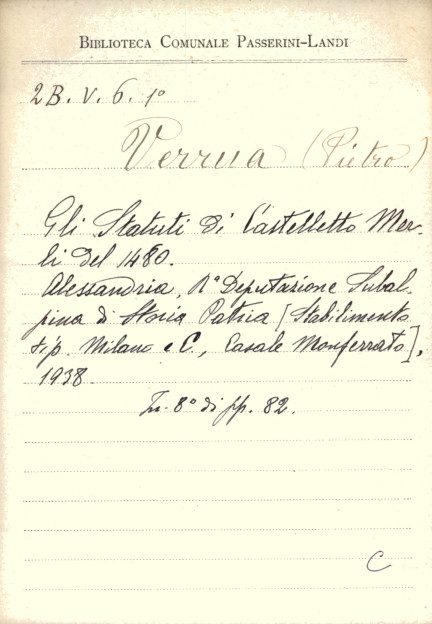 BIBLIOTECA COMUNALE PASSERINI-LANDI
2B. V. 6. 1º
Verrua (Pietro)
Gli Statuti di Castelletto Mer-
li del 1480.
Alessandria, Rª Deputazione Subal-
pina di Storia Patria [Stabilimento
tip. Milano e C., Casale Monferrato],
1938
In-8º di pp. 82.
C